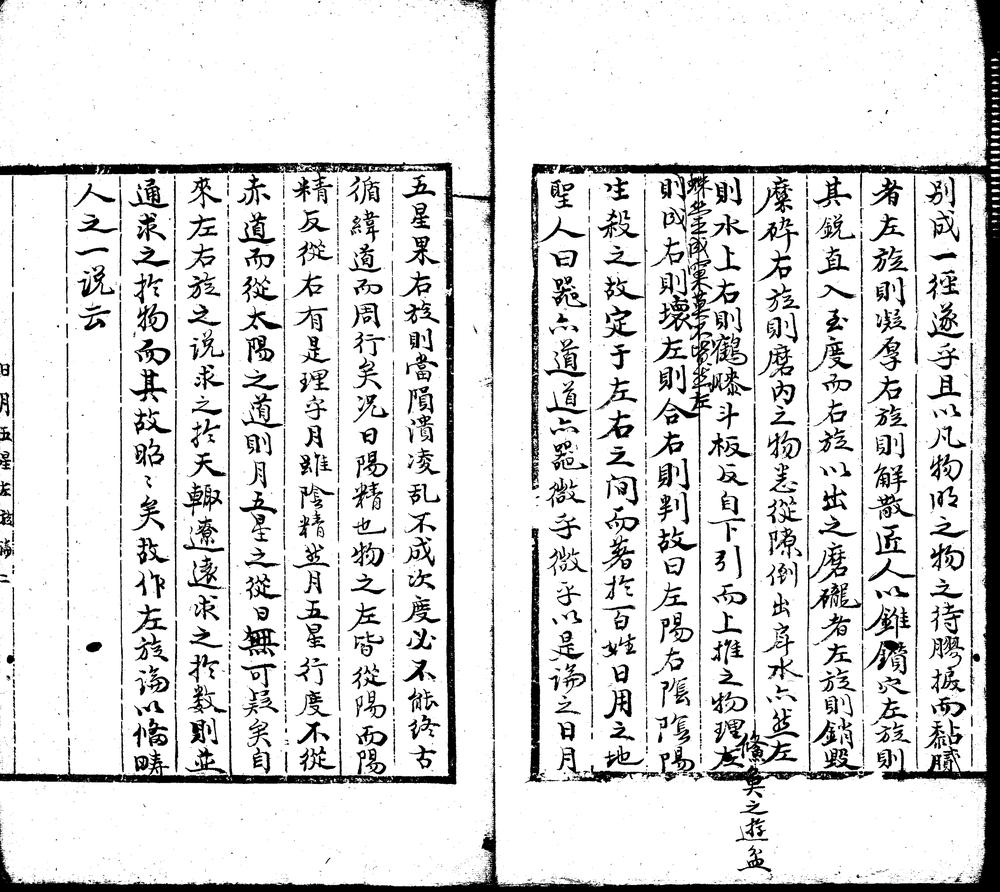 别成一徑遂乎且以凡物明之物之待膠掁而黏膩
者左旋則凝厚右旋則解散匠人以錐鑽穴左旋則
其銳直入至度而右旋以出之磨礲者左旋則銷毀
糜碎右旋則磨內之物悉從隙倒出戽水亦然左
則水上右則鶴膝斗板反自下引而上推之物理左
儵矣之遊盆
蛛堂成窠莫不皆然左
則成右則壞左則合右則判故曰左陽右陰陰陽
生殺之故定于左右之间而著扵百姓日用之地
聖人曰噐亦道道亦噐微乎微乎以是論之日月
五星果右旋則當隕潰凌乱不成次度必不能终古
循緯道而周行矣况日陽精也物之左皆從陽而陽
精反從右有是理乎月雖陰精然月五星行度不從
赤道而從太陽之道則月五星之從日無可疑矣自
來左右旋之说求之扵天輙遼遠求之扵数則並
通求之扵物而其故昭〻矣故作左旋論以備疇
人之一说云
日月五星左旋論 二